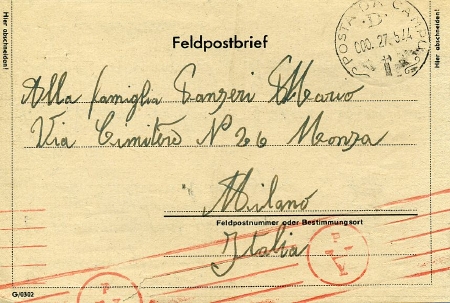 Hier abschneiden!
Feldpostbrief
POSTA DA CAMPO
D
000. 27.5.44
Hier abschneiden!
Alla famiglia Panzeri Mario
Via Cimitero N° 26 Monza
Milano
Feldpostnummer oder Bestimmungsort
Italia
G/0302